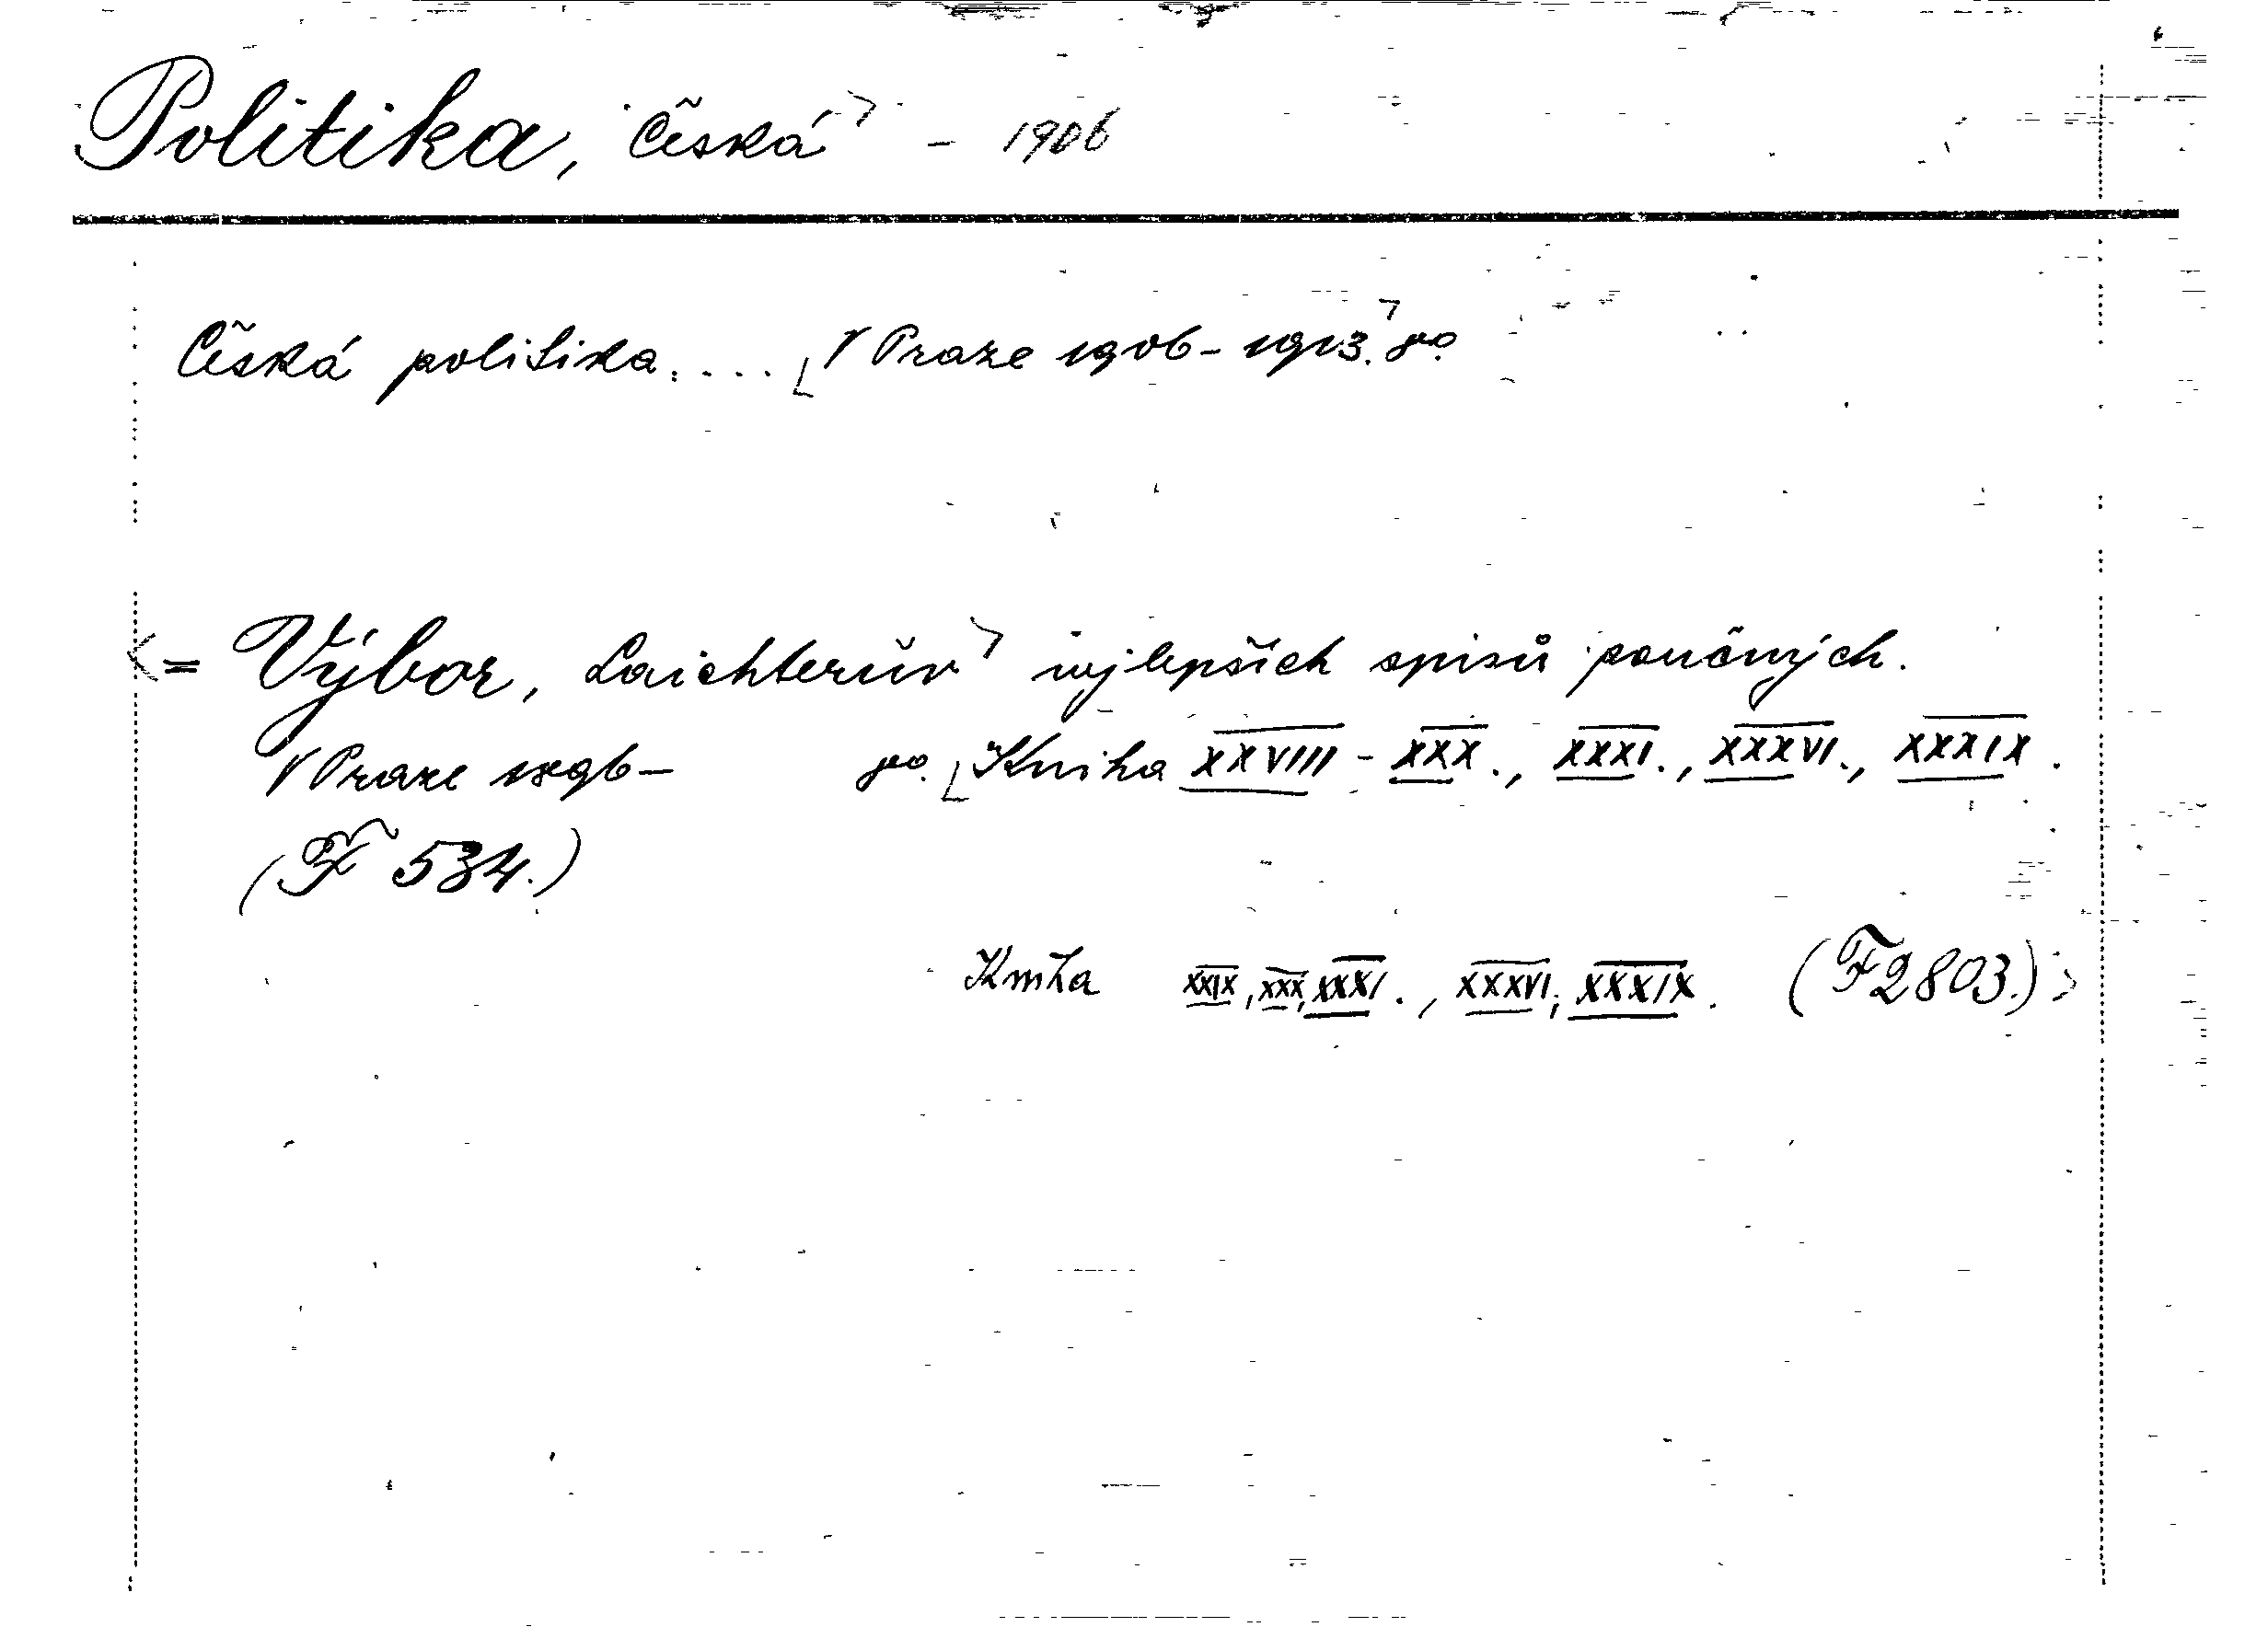 Politika, Česká - 1906
Česká politika.... [V Praze 1906-1913. 8°.
<= Výbor, Laichterův nejlepších spisů poučných.
V Praze 1896- 8°. [Kniha XXVIII - XXX., XXXI., XXXVI., XXXIX.
(F 534.)
Kniha XXIX, XXX, XXXI., XXXVI, XXXIX. (F 2803.)>